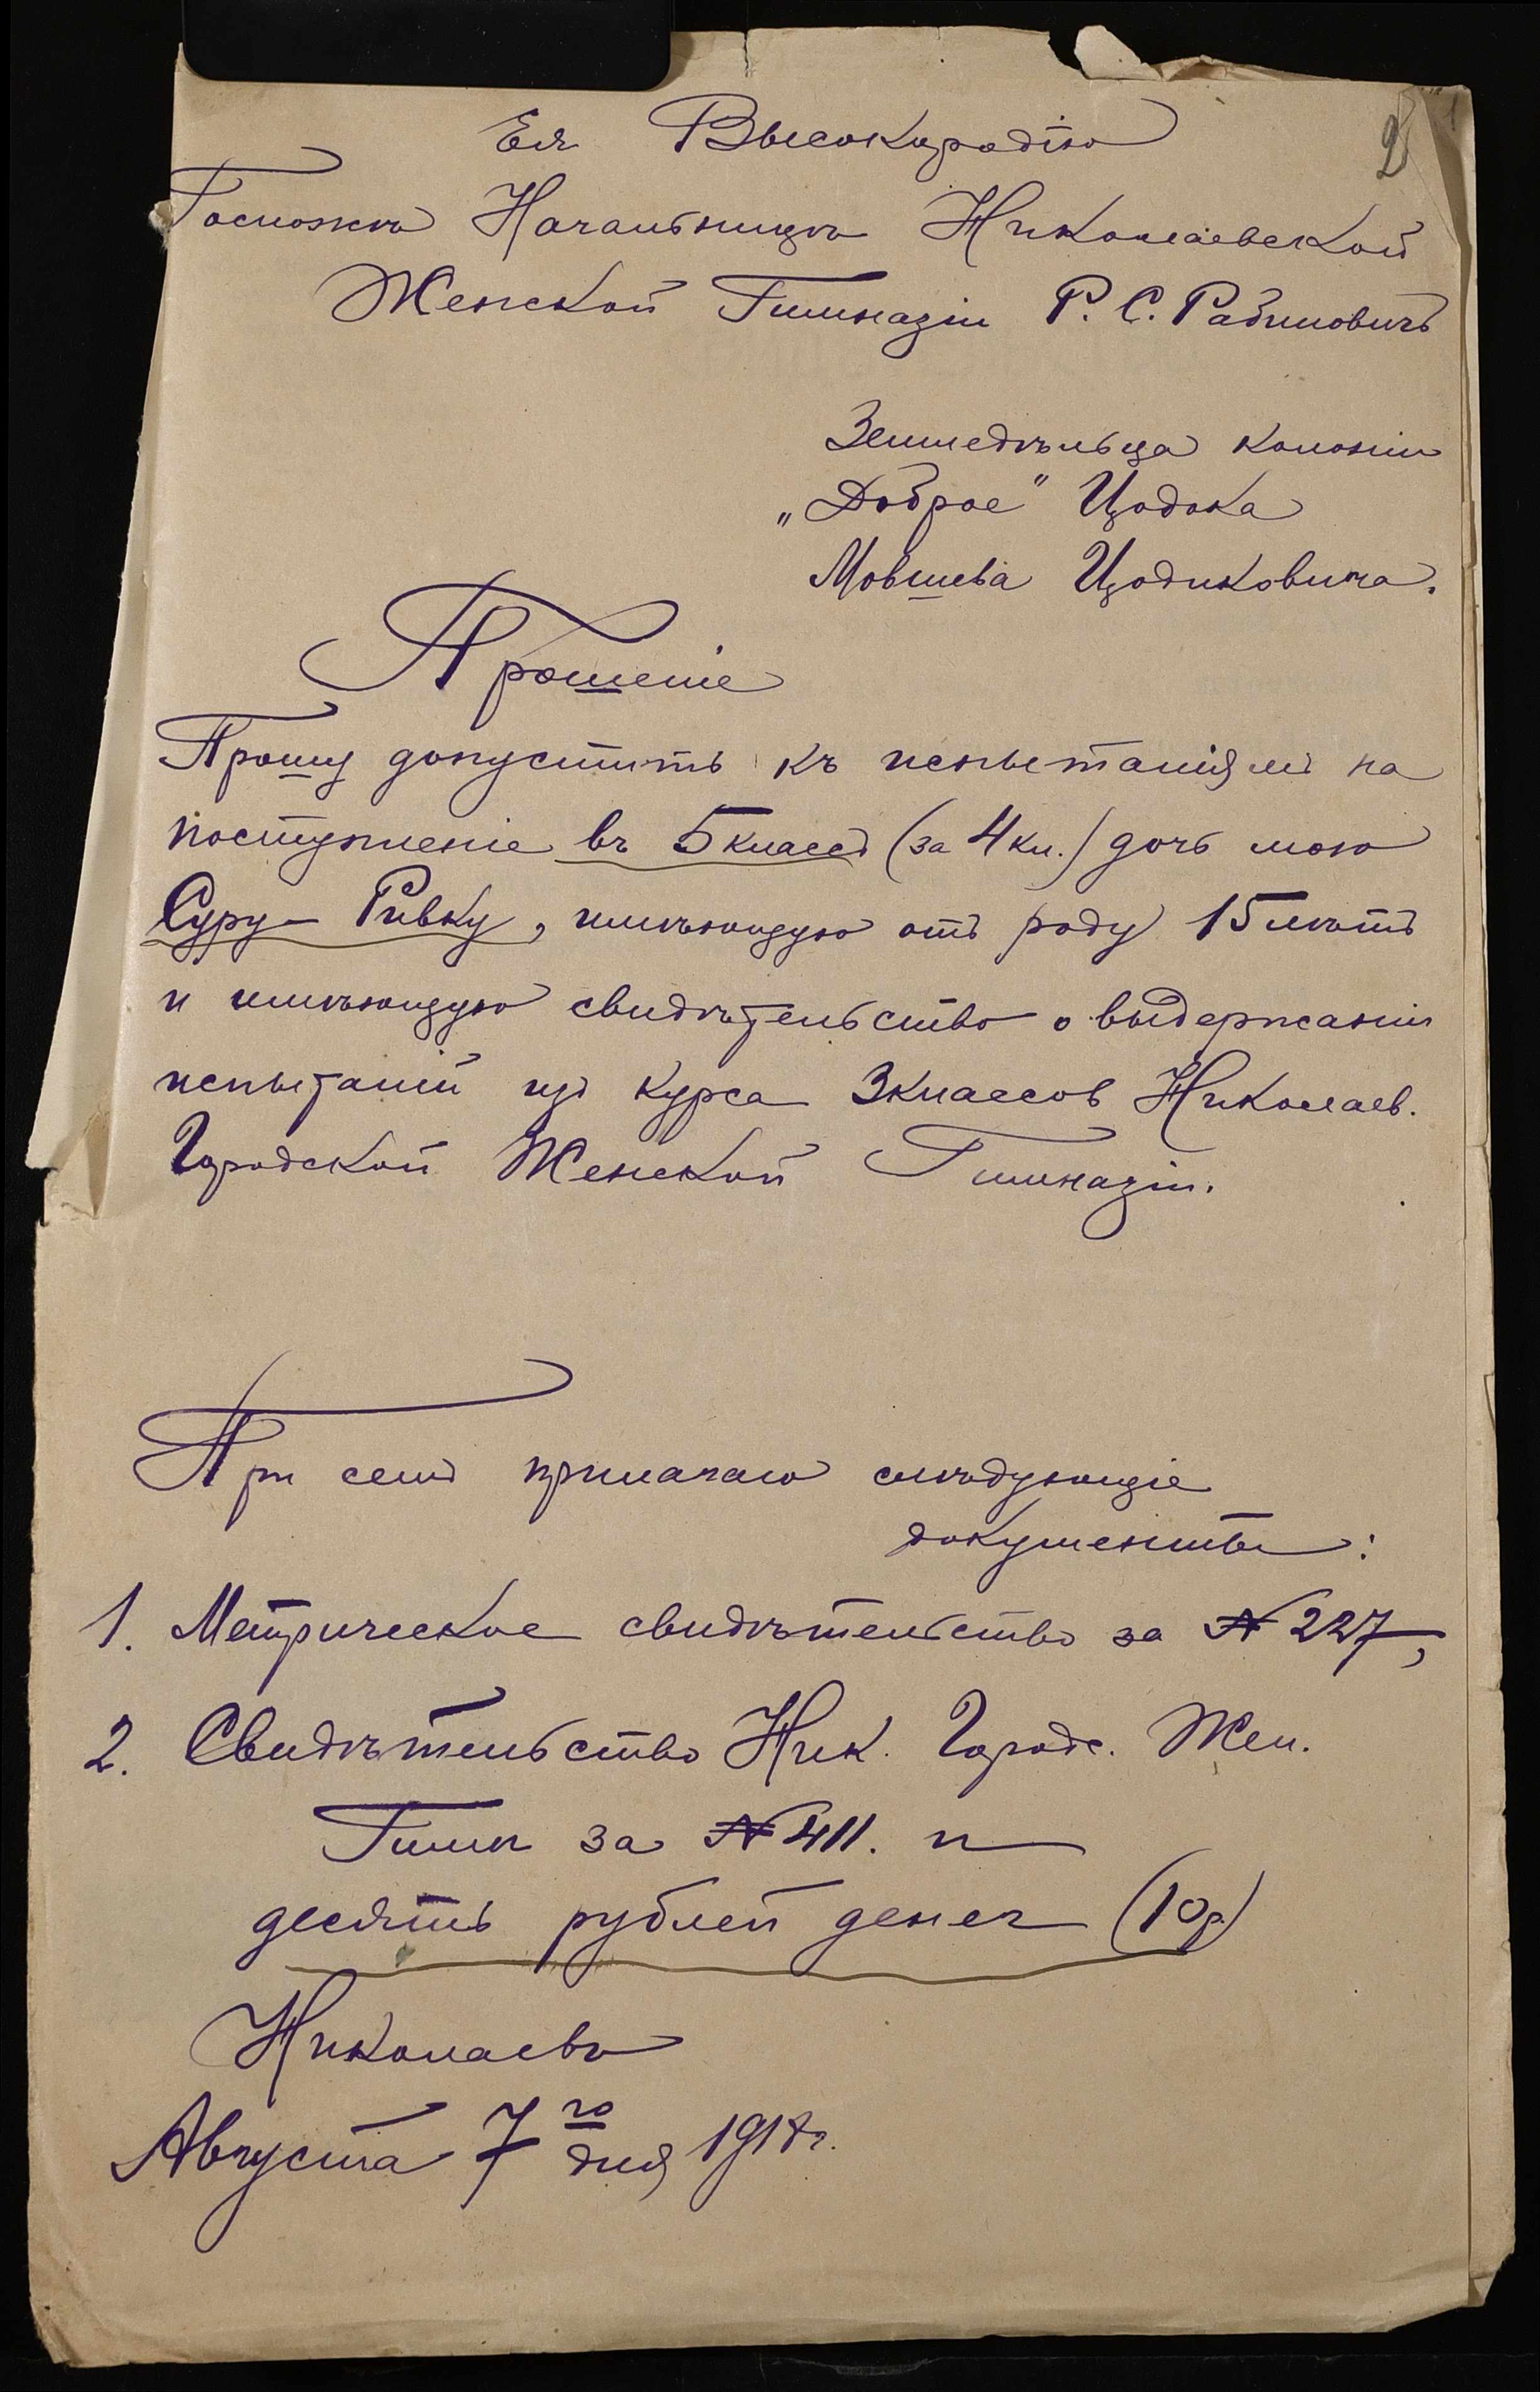 2
Ея Высокородію
Госпожѣ Начальницѣ Николаевской
Женской Гимназіи Р. С. Рабиновичъ
Земледѣльца колоніи
„Доброе" Цодока
Мовшева Цодиковича.
Прошеніе
Прошу допустить къ испытаніямъ на
поступленіе въ 5 классъ (за 4 кл.) дочь мою
Суру-Ривку, имѣющую отъ роду 15 лѣтъ
и имѣющую свидѣтельство о выдержаніи
испытаній изъ курса 3 классов Николаев.
Городской Женской Гимназіи.
При семъ прилагаю слѣдующіе
документы:
1. Метрическое свидѣтельство за № 227,
2. Свидѣтельство Ник. Городс. Жен.
Гимн за № 411. и
десять рублей денег (10 р)
Николаевъ
Августа 7го дня 1917 г.